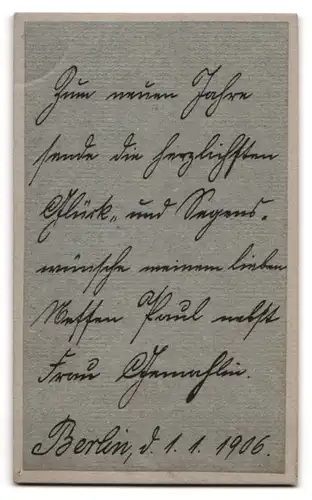 Zum neuen Jahre
sende die herzlichsten
Glück- und Segens-
wünsche meinem lieben
Neffen Paul nebst
Frau Gemahlin.
Berlin, d. 1. 1. 1906.